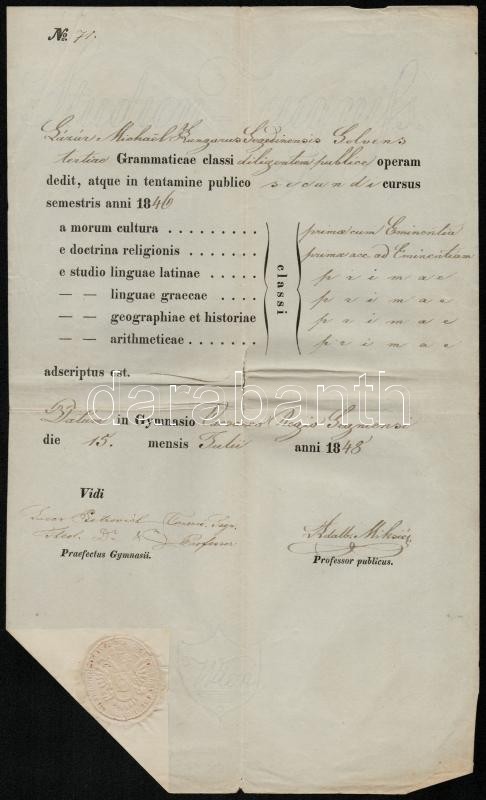 №. 71.
Lázár Michaël Hungarus Szegedinensis Solvens
tertiae Grammaticae classi diligentem publice operam
dedit, atque in tentamine publico secundi cursus
semestris anni 1846
a morum cultura . . . . . . . . . primae cum Eminentia
e doctrina religionis . . . . . . primae acc. ad Eminentiam
e studio linguae latinae . . . . primae
— — linguae graecae . . . . primae
— — geographiae et historiae primae
— — arithmeticae . . . . . . . primae
classi
adscriptus est.
darabanth
Datum in Gymnasio Regio
die 15. mensis Julii anni 1848
Vidi
Petrovich
Professor
Adalb. Miksics
Praefectus Gymnasii.
Professor publicus.